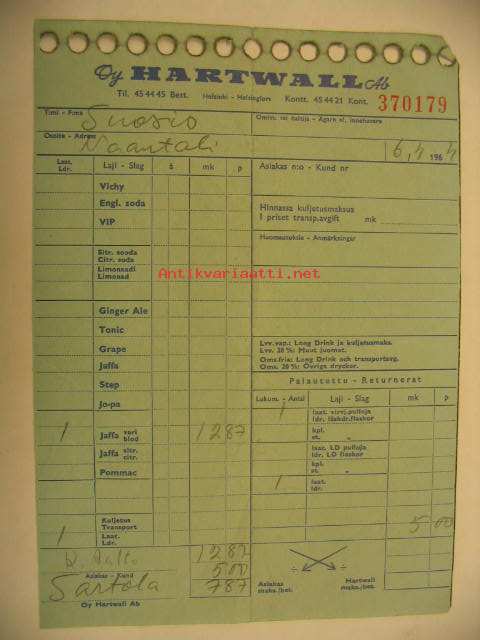 Oy HARTWALL Ab
Til. 45 44 45 Best. Helsinki - Helsingfors Kontt. 45 44 21 Kont. 370179
Nimi - Firma Suosio Omist. tai haltija - Ägare el. innehavare
Osoite - Adress Naantali 6/4 1964
Laat. Ldr. Laji - Slag à mk p Asiakas n:o - Kund nr
Vichy
Engl. soda
Hinnassa kuljetusmaksua
VIP I priset transp.avgift mk
Huomautuksia - Anmärkningar
Sitr. sooda
Citr. soda
Limonaadi
Limonad
Antikvariaatti.net
Ginger Ale
Tonic
Grape Lvv. vap.: Long Drink ja kuljetusmaks.
Lvv. 20 %: Muut juomat.
Jaffa Oms.fria: Long Drink och transportavg.
Oms. 20 %: Övriga drycker.
Step Palautettu - Returnerat
Jo-pa Lukum. - Antal Laji - Slag mk p
1 laat. virvj.pulloja
ldr. läskdr.flaskor
1 Jaffa veri blod 1287 kpl. st. "
Jaffa sitr. citr. laat. LD pulloja
ldr. LD flaskor
Pommac kpl. st. "
1 laat. ldr.
Kuljetus
Transport 5 00
1 Laat. Ldr.
1287
Asiakas - Kund 500
Sartola 787 Asiakas maks./bet. Hartwall maks./bet.
Oy Hartwall Ab